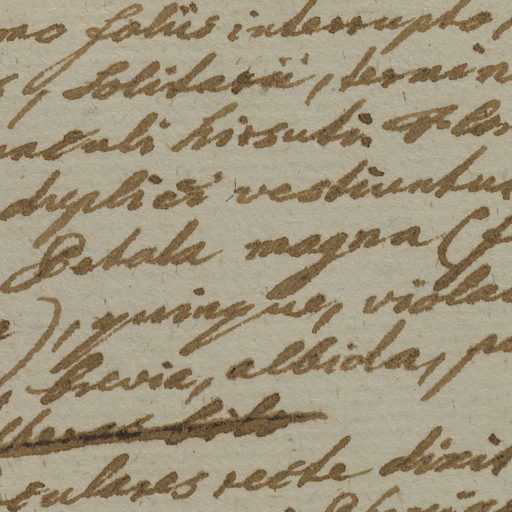 mo foliis interrupto,
s, Solitarii, termin
nguli hirsuti. Flor
duplici vestiuntur
Petala magna (f
e), quinque, violac
brevia, albida, pa
gulares recte dixit